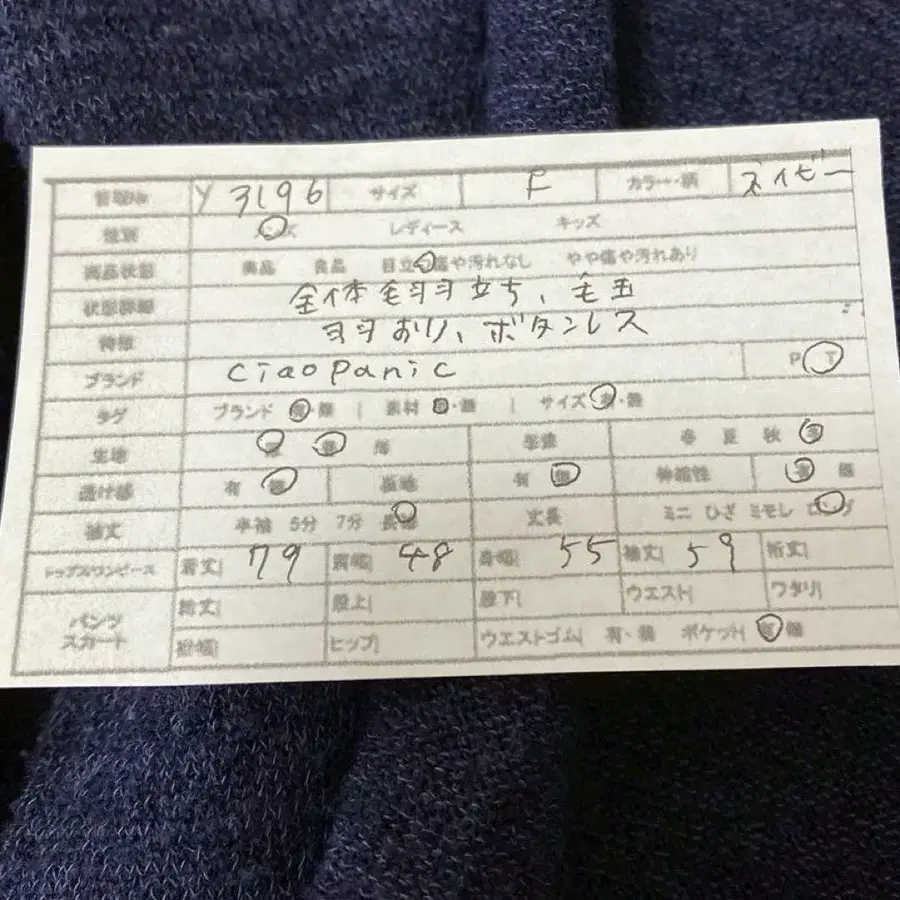 管理No Y 3196 サイズ F カラー・柄 ネイビー
種別 レディース キッズ
商品状態 美品 良品 目立つ傷や汚れなし やや傷や汚れあり
状態詳細 全体毛羽立ち、毛玉
特徴 ヨヨおり、ボタンレス
ブランド ciaopanic P T
タグ ブランド 有・無 | 素材 有・無 | サイズ 有・無
生地 薄 春 夏 秋 冬
透け感 有 無 裏地 有 無 伸縮性 有 無
袖丈 半袖 5分 7分 長袖 丈長 ミニ ひざ ミモレ ロング
トップス/ワンピース 着丈| 79 肩幅| 48 身幅| 55 袖丈| 59 裄丈|
パンツ スカート 総丈| 股上| 股下| ウエスト| ワタリ|
裾幅| ヒップ| ウエストゴム| 有・無 ポケット| 有 無